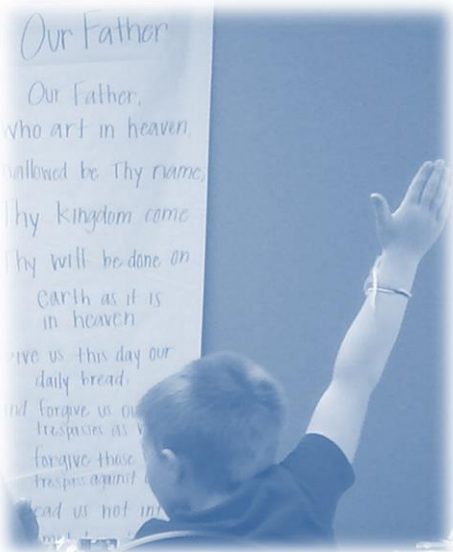 Our Father
Our Father,
who art in heaven,
hallowed be Thy name,
Thy kingdom come
Thy will be done on
earth as it is
in heaven
give us this day our
daily bread.
and forgive us ou
trespasses as w
forgive those
trespass against
lead us not int